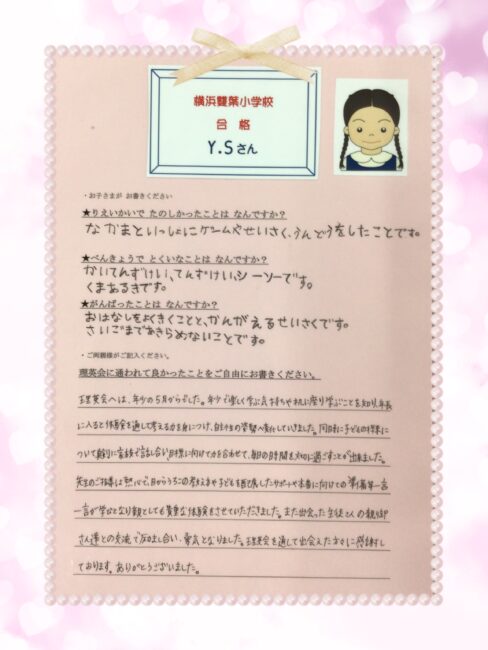 横浜雙葉小学校
合格
Y.Sさん
・お子さまが お書きください
★りえいかいで たのしかったことは なんですか?
なかまといっしょにゲームやせいさく、うんどうをしたことです。
★べんきょうで とくいなことは なんですか?
かいてんずけい、てんずけい、シーソーです。
くまあるきです。
★がんばったことは なんですか?
おはなしをよくきくことと、かんがえるせいさくです。
さいごまであきらめないことです。
・ご両親様がご記入ください。
理英会に通われて良かったことをご自由にお書きください。
理英会へは、年少の5月からでした。年少で楽しく学ぶ気持ちや机に座り学ぶことを知り、年長
に入ると体験を通して考える力を身につけ、自主的の姿勢へ変化していきました。同時に子どもの様々に
ついて親子に家族で話し合い目標に向けて力を合わせて、毎日の時間を大切に過ごすことが出来ました。
先生のご指導は熱心で、日からうろこの考え方や子どもを通して親したサポートや本番に向けての準備等一言
一言が学びとなり親としても貴重な体験をさせていただきました。また出会った生徒さんの親御
さん達との交流で励まし合い、勇気となりました。理英会を通して出会えた方々に感謝し
ております。ありがとうございました。